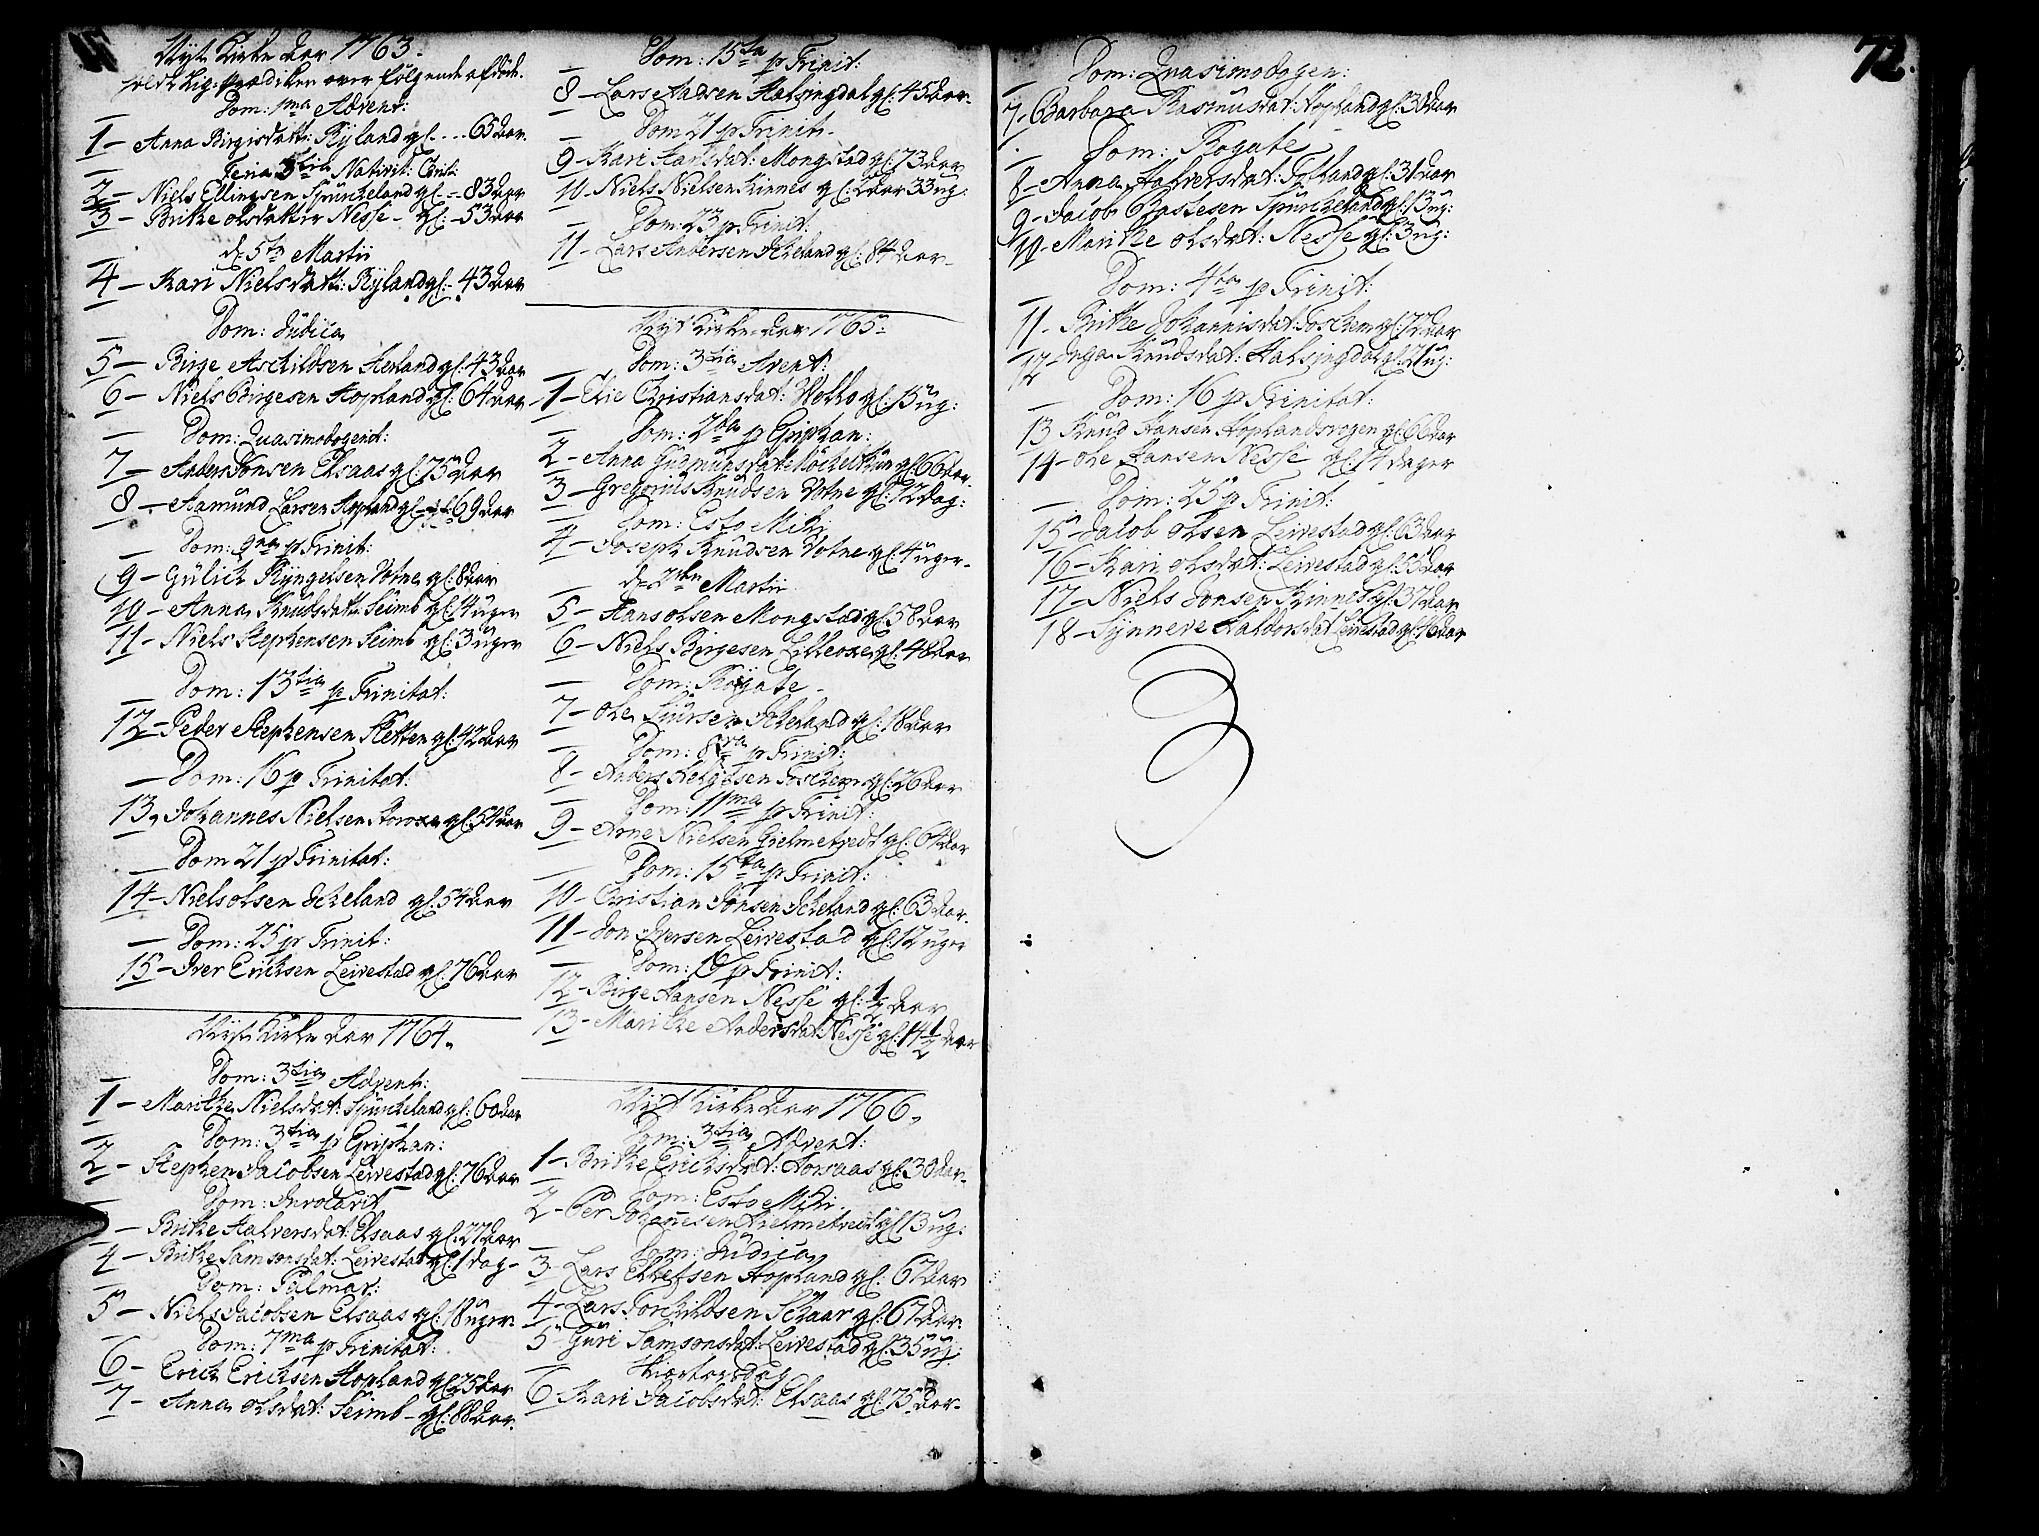 Nyt Kirke Aar 1763.
holdt Lig-prædiken over følgende afdöde.
Dom: 1ma Advent:
1 - Anna Birgisdatt: Ryland gl. - - 65 aar.
Feria 3tia Nativit: Christi
2 - Niels Ellingsen Spurckeland gl. - 83 aar
3 - Brithe olsdatter Nesse - gl: - 53 aar
d 5te Martii
4 - Kari Nielsdatt: Ryland gl. - 43 aar
Dom: Judica
5 - Birge Aschildsen Herland gl: 43 aar
6 - Niels Birgesen Hopland gl: 64 aar
Dom: Quasimodogenit:
7 - Anders Jonsen Elsaas gl: 75 aar
8 - Aamund Larsen Hopland gl: 69 aar
Dom: 9na p Trinit:
9 - Gulich Ryngelsen Votne gl: 8 aar
10 - Anna Knudsdatt: Seimb gl: 14 uger
11 - Niels Stephensen Seimb gl: 3 uger
Dom: 13tia p Trinitat:
12 - Peder Stephensen Hetten gl: 42 aar
Dom: 16 p Trinitat:
13, Johannes Nielsen gl: 54 aar
Dom 21 p Trinitat:
14 - Niels olsen Ickeland gl: 54 aar
Dom: 25 p Trinit:
15 - Iver Ericksen Leirestad gl: 76 aar
Nyt Kirke Aar 1764.
Dom: 3tia Advent:
1 - Maritha Nielsdat: Spurckeland gl: 60 aar
Dom: 3tia p Epiphan:
2 - Stephen Jacobsen Leirestad gl: 76 aar
Dom: Invocavit
- Britha Halversdat: Elsaas gl: 27 aar
4 - Britha Samsonsdat: Leirestad gl: 1 dag -
Dom: Palmar:
5 - Niels Jacobsen Elsaas gl: 18 uger.
Dom: 7ma p Trinitat:
6 - Erick Ericksen Hopland gl: 25 aar
7 - Anna olsdat: Seimb - gl: 88 aar.
Dom: 15ta p Trinit:
8 - Lars Andsen Halsingdal gl: 45 aar.
Dom 21 p Trinit:
9 - Kari Hansdat: Mongstad gl: 73 aar
10 - Niels Nielsen Kinnes gl: 2 aar 33 ug:
Dom: 23 p Trinit:
11 - Lars Andersen Ickeland gl: 84 aar -
Nyt Kirke Aar 1765:
Dom: 3tia Advent:
1 - Elie Christiansdat: gl: 15 ug:
Dom: 2da p Epiphan:
2 - Anna Gudmunsdat: gl: 66 aar.
3 - Gregorius Knudsen Votne gl: 12 dag:
Dom: Esto Mihi
4 - Joseph Knudsen Votne gl: 4 uger -
Martii
5 - Hans olsen Mongstad gl: 58 aar
6 - Niels Birgesen Lilleose gl: 48 aar
Dom: Rogate -
7 - Ole Siursen Ickeland gl: 18 aar
Dom: 8va p Trinit:
8 - Anders Helgesen Foschem gl: 26 aar
Dom: 11ma p Trinit:
9 - Arne Nielsen Gielmetvedt gl: 64 aar
Dom: 15ta p Trinit:
10 - Christian Jonsen Ickeland gl: 63 aar -
11 - Jon Iversen Leirestad gl: 12 uger
Dom: 16 p Trinit:
12 - Birge Hansen Nesse gl: 1/2 aar
13 - Marithe Andersdat: Nesse gl: 14 1/2 aar
Nyt Kirke Aar 1766.
Dom: 3tia Advent:
1 - Britha Ericksdat: Aorsaas gl: 30 aar -
Dom: Esto Mihi:
2 - Per Johannesen Hielmetvedt gl: 13 ug:
Dom: Judica
3 - Lars Ellefsen Hopland gl: 67 aar
4 - Lars Torchildsen Schaar gl: 67 aar:
5 Guri Samsonsdat: Leirestad gl: 35 ug:
Skiærtorsdag
6 - Kari Jacobsdat: Elsaas gl: 75 aar -
72.
Dom: Quasimodogen:
7 - Barbara Rasmusdat: Hopland gl: 30 aar
Dom: Rogate
8 - Anna Halversdat: Totland gl: 31 aar
9 - Jacob Bastesen Spurckeland gl: 13 ug:
10 - Marithe olsdat: Nesse gl: 3 ug:
Dom: 4ta p Trinit:
11 - Brithe Johannisdat: Foschem gl: 72 aar
12 - Inga Knudsdat: Halsingdal gl: 21 ug:
Dom: 16 p Trinitat:
13 Knud Hansen Hoplandsvogen gl: 60 aar
14 - Ole Hansen Nesse gl: 14 dager
Dom: 25 p Trinit:
15 - Jacob olsen Leirestad gl: 63 aar
16 - Kari olsdat: Leirestad gl: 50 aar
17 - Niels Jonsen Kinnes gl: 37 aar
18 - Synneve Haldorsdat Leirestad gl: 76 aar